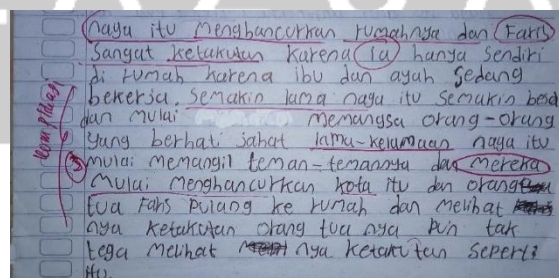 naga itu menghancurkan rumahnya dan Faris
sangat ketakutan karena ia hanya sendiri
di rumah karena ibu dan ayah sedang
bekerja. Semakin lama naga itu semakin besa
dan mulai memangsa orang-orang
yang berhati jahat lama-kelamaan naga itu
mulai memangil teman-temannya dan mereka
mulai menghancurkan kota itu dan orang
tua Faris pulang ke rumah dan melihat
nya ketakutan orang tua nya pun tak
tega melihat nya ketakutan seperti
itu.
Komplikasi